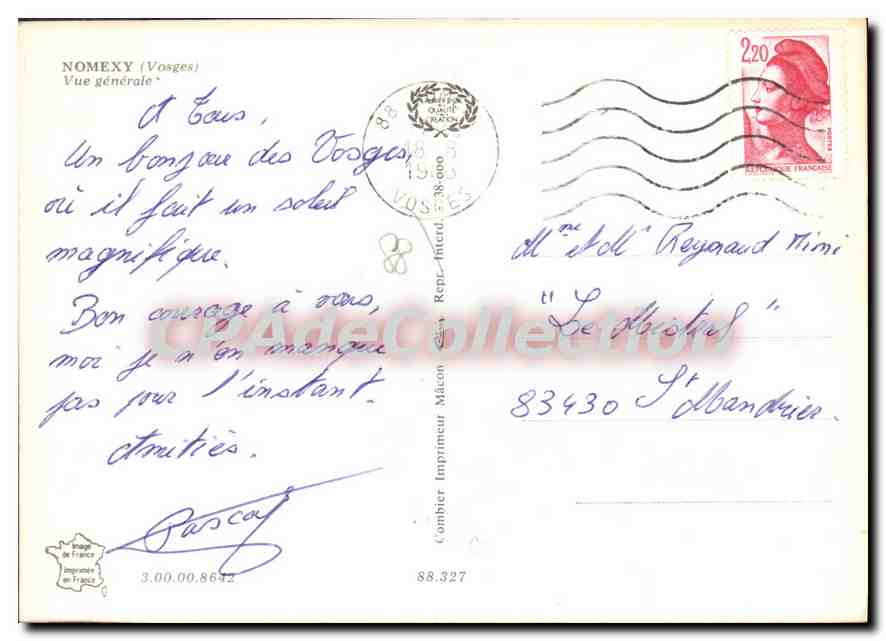 NOMEXY (Vosges)
Vue générale
A Tous,
Un bonjour des Vosges,
où il fait un soleil
magnifique.
Bon courage à vous,
moi je n'en manque
pas pour l'instant.
Amitiés.
Pascal
Image
de France
Imprimée
en France
3.00.00.8642
88.327
Combier Imprimeur Mâcon
Repr. Interd. 738-000
88
QUALITÉ
CRÉATION
18-8
VOSGES
88
2,20
POSTES
REPUBLIQUE FRANÇAISE
Mme et Mr Reynaud Mimi
"Le Mistral"
83430 St Mandrier.
CPAdeCollection